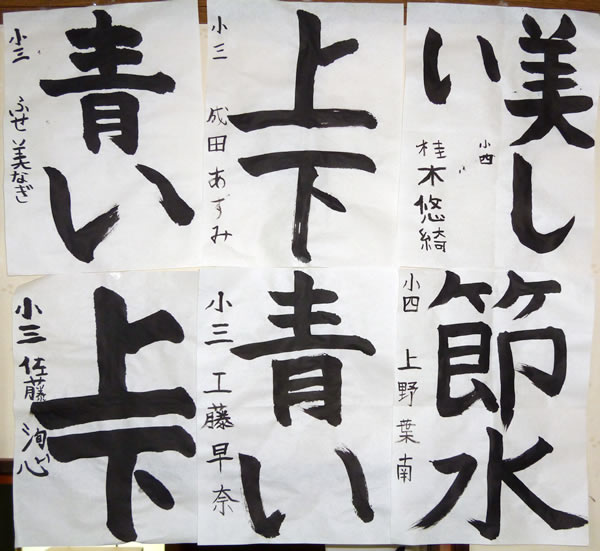 美し
い
小四
桂木悠綺
上下
小三
成田あずみ
青い
小三
ふせ美なぎ
節水
小四
上野葉南
青い
小三
工藤早奈
上下
小三
佐藤洵心